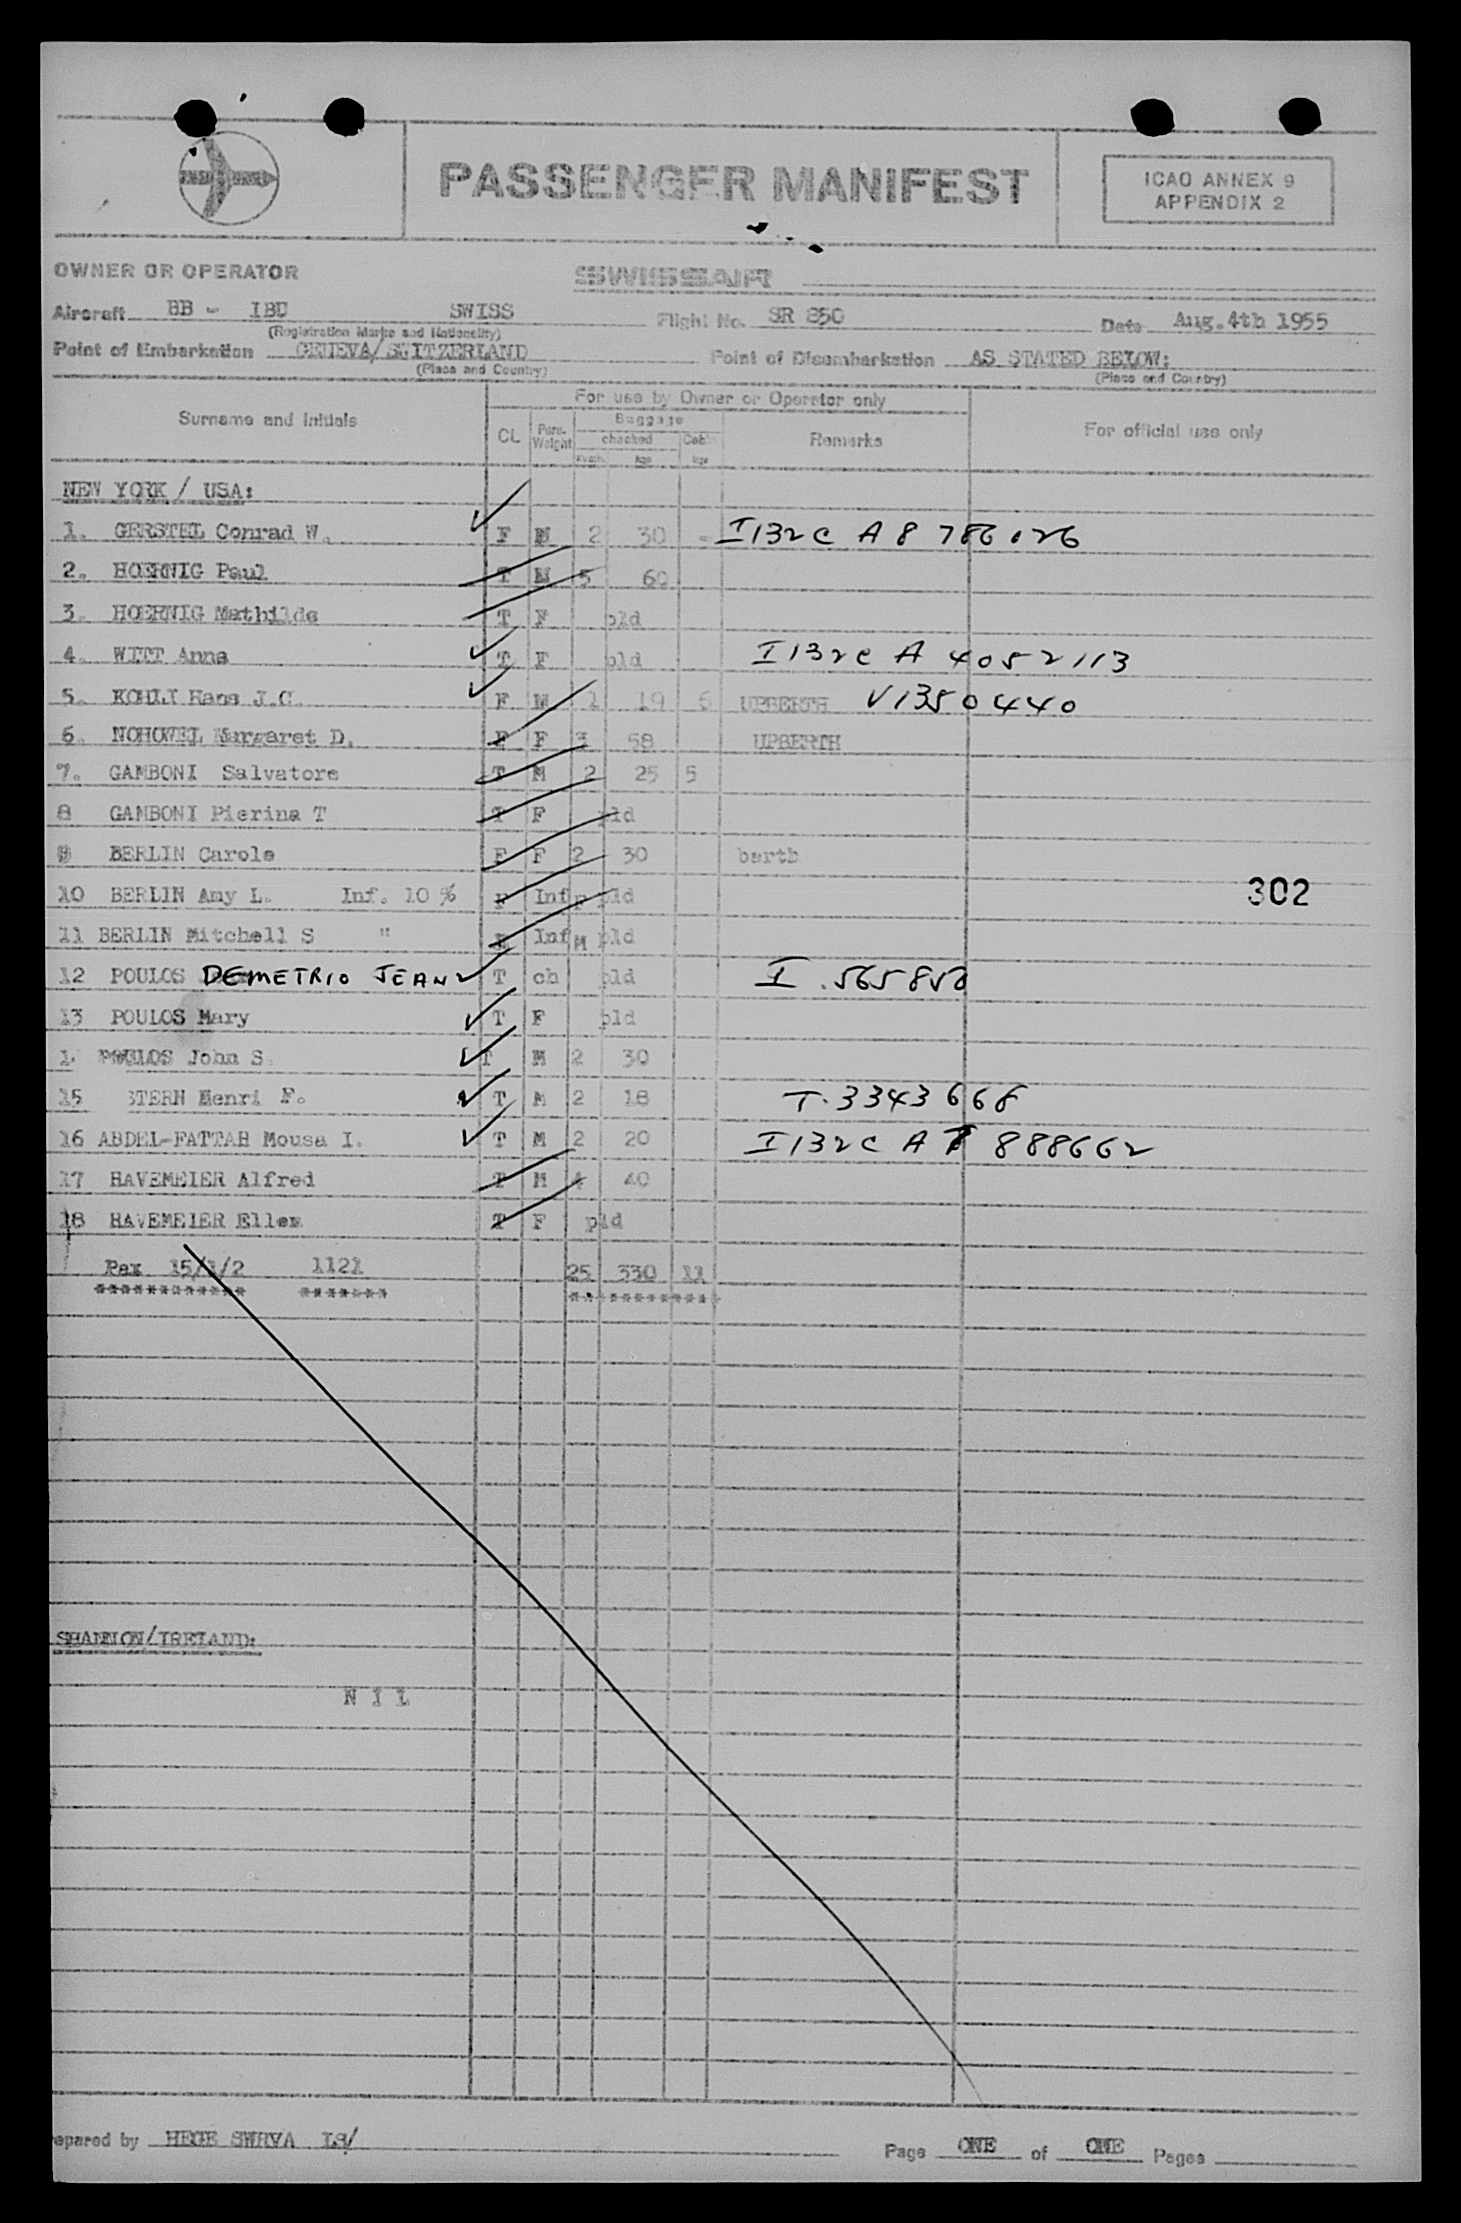 PASSENGER MANIFEST
ICAO ANNEX 9
APPENDIX 2
OWNER OR OPERATOR SWISSAIR
Aircraft BB - IBU SWISS Flight No. SR 850 Date Aug.4th 1955
(Registration Marks and Nationality)
Point of Embarkation GENEVA/SWITZERLAND Point of Disembarkation AS STATED BELOW:
(Place and Country) (Place and Country)
For use by Owner or Operator only
Surname and Initials CL Pers. Weight Baggage checked Cab. Remarks For official use only
kgs kgs
NEW YORK / USA:
1. GERSTEL Conrad W. F M 2 30 - I132c A8 786026
2. HOERNIG Paul T M 5 60
3. HOERNIG Mathilde T F pld
4. WITT Anna T F pld I132c A 4052113
5. KOHLI Hans J.C. F M 1 19 6 UPBERTH V1350440
6. NOHOWEL Margaret D. F F 3 58 UPBERTH
7. GAMBONI Salvatore T M 2 25 5
8 GAMBONI Pierina T T F pld
9 BERLIN Carole F F 2 30 berth
10 BERLIN Amy L. Inf. 10 % F Inf F pld
302
11 BERLIN Mitchell S " F Inf M pld
12 POULOS DEMETRIO JEAN T ch pld I. 565850
13 POULOS Mary T F pld
1 POULOS John S. T M 2 30
15 STERN Henri F. T M 2 18 T. 3343668
16 ABDEL-FATTAH Mousa I. T M 2 20 I132c A 888662
17 HAVEMEIER Alfred T M 4 40
18 HAVEMEIER Ellen T F pld
Pax 15/1/2 1121 25 330 11
************ ******* ** *********
SHANNON/IRELAND:
N I L
epared by HEGE SWRVA Page ONE of ONE Pages